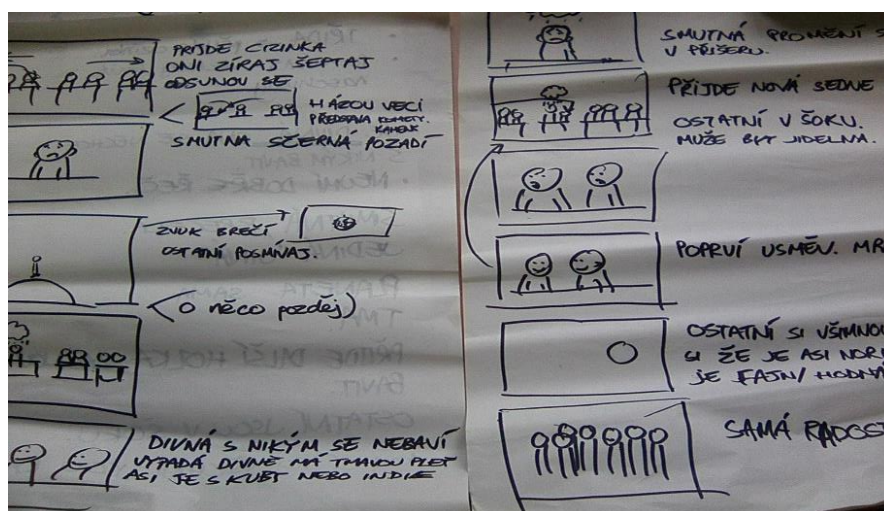 PRIJDE CIZINKA
ONI ZÍRAJ ŠEPTAJ
ODSUNOV SE
HÁZOU VECI
PŘEDSTAVA KOMETY.
KAMENY
SMUTNA SČERNÁ POZADÍ
ZVUK BREČÍ
OSTATNÍ POSMÍVAJ.
O něco pozděj)
DIVNÁ S NIKÝM SE NEBAVÍ
VYPADÁ DIVNĚ MÁ TMAVOU PLEŤ
ASI JE S KUBY NEBO INDIE
SMUTNÁ PROMĚNÍ S
V PŘÍŠERU.
PŘÍJDE NOVÁ SEDNE
OSTATNÍ V ŠOKU.
MUŽE BYT JIDELNA.
POPRVÍ USMĚV. MR
OSTATNÍ SI VŠIMNOU
SI ŽE JE ASI NOR
JE FAJN/HODNÁ
SAMÁ RADOST